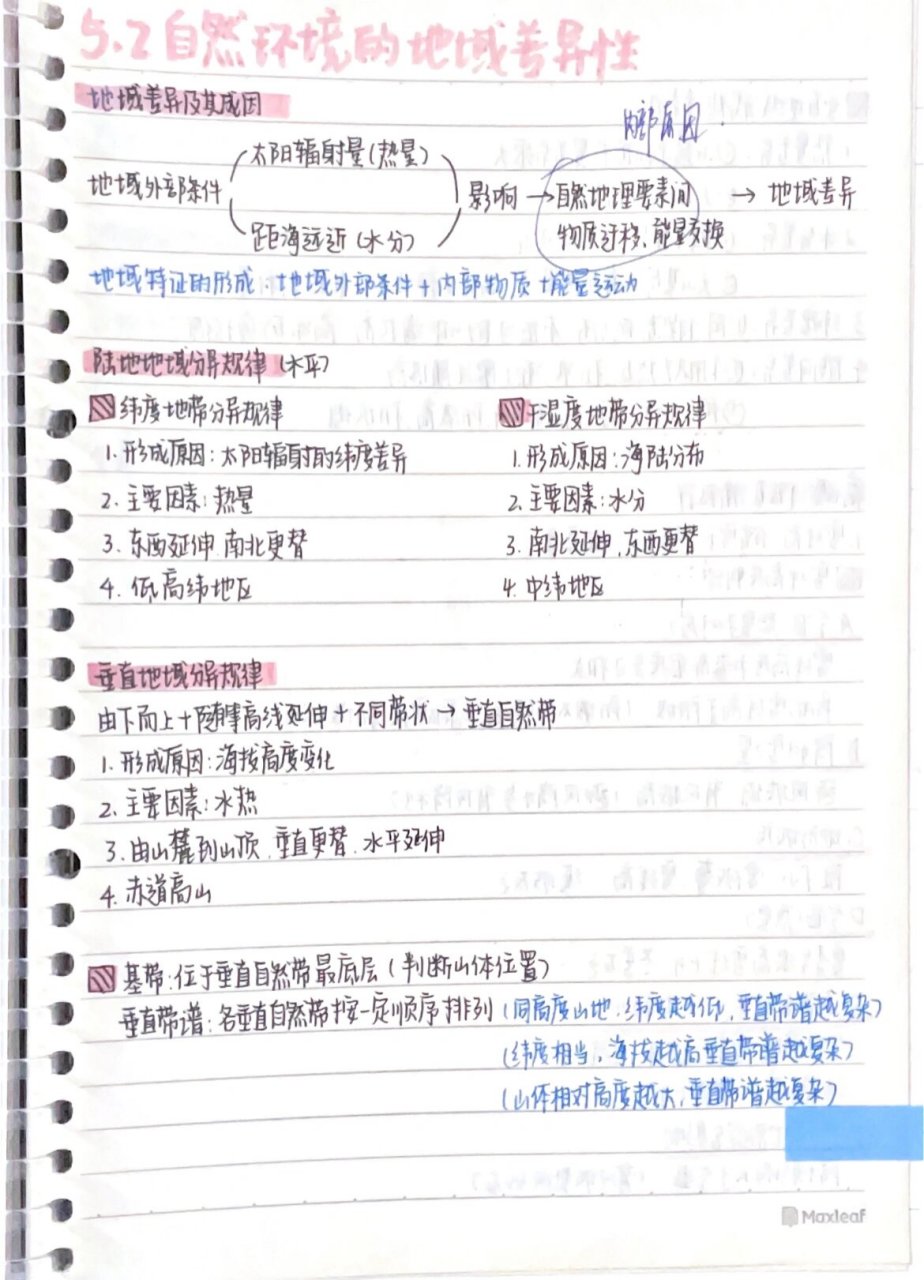 5.2 自然环境的地域差异性
地域差异及其成因
内部原因
太阳辐射量(热量)
地域外部条件 影响 → 自然地理要素间 → 地域差异
距海远近(水分) 物质迁移、能量交换
地域特征的形成：地域外部条件+内部物质+能量运动
陆地地域分异规律(水平)
纬度地带分异规律
1.形成原因:太阳辐射的纬度差异
2.主要因素:热量
3.东西延伸.南北更替
4.低高纬地区
干湿度地带分异规律
1.形成原因:海陆分布
2.主要因素:水分
3.南北延伸,东西更替
4.中纬地区
垂直地域分异规律
由下而上+随等高线延伸+不同带状→垂直自然带
1.形成原因:海拔高度变化
2.主要因素:水热
3.由山麓到山顶.垂直更替.水平延伸
4.赤道高山
基带:位于垂直自然带最底层(判断山体位置)
垂直带谱:各垂直自然带按一定顺序排列(同高度山地,纬度越低,垂直带谱越复杂)
(纬度相当,海拔越高垂直带谱越复杂)
(山体相对高度越大,垂直带谱越复杂)
Maxleaf